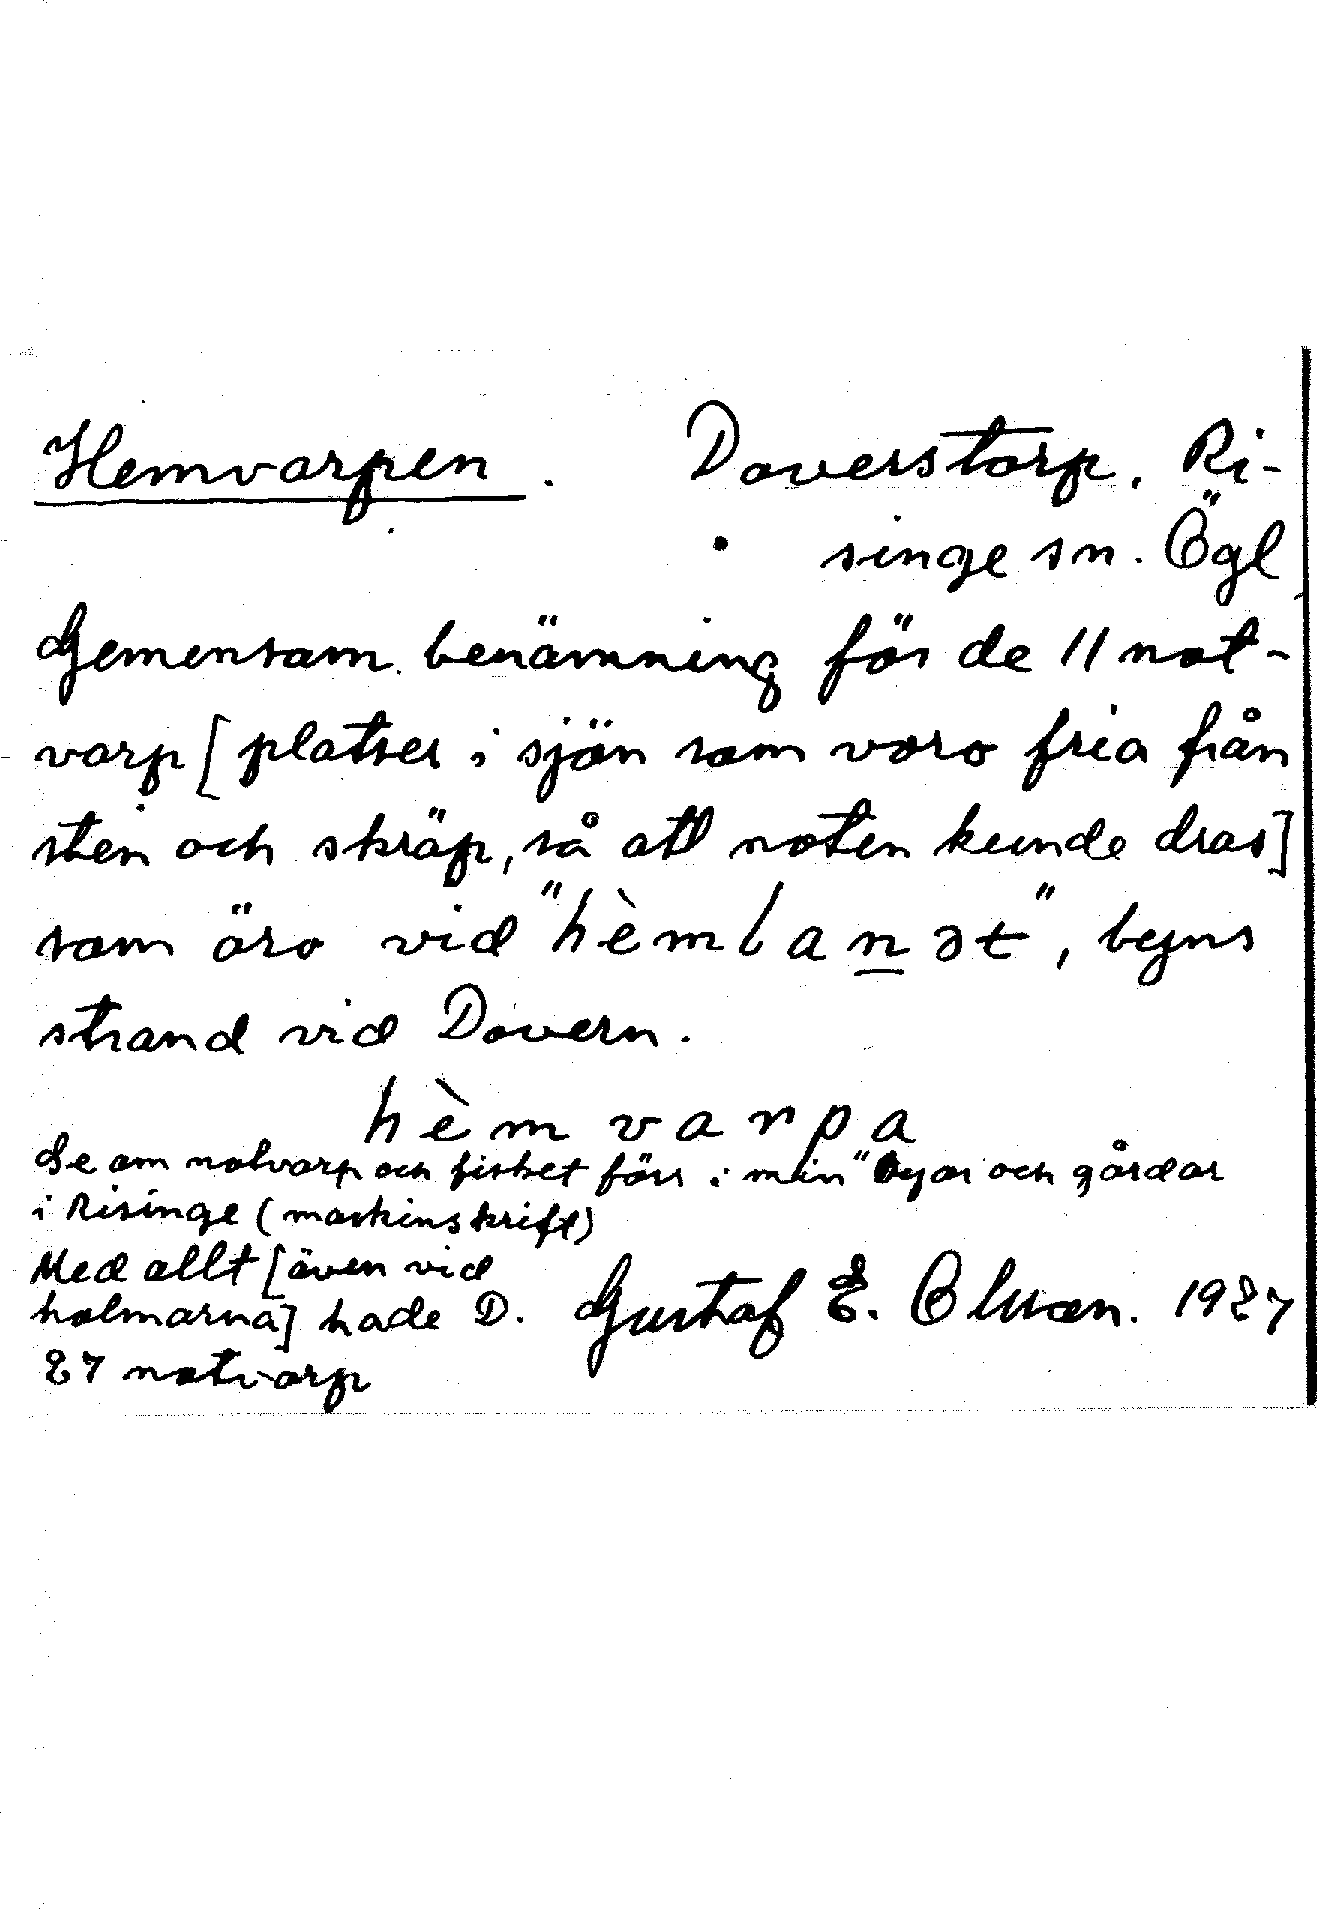 Hemvarpen. Doverstorp. Ri-
singe sn. Ögl
Gemensam benämning för de 11 not-
varp [platser i sjön som voro fria från
sten och skräp, så att noten kunde dras]
som äro vid "hèmlanət", byns
strand vid Dovern.
hèmvarpa
Se om notvarp och fisket förr i min "Byar och gårdar
i Risinge (maskinskrift)
Med allt [även vid
holmarna] hade D.
27 notvarp
Gustaf E. Olsson. 1927